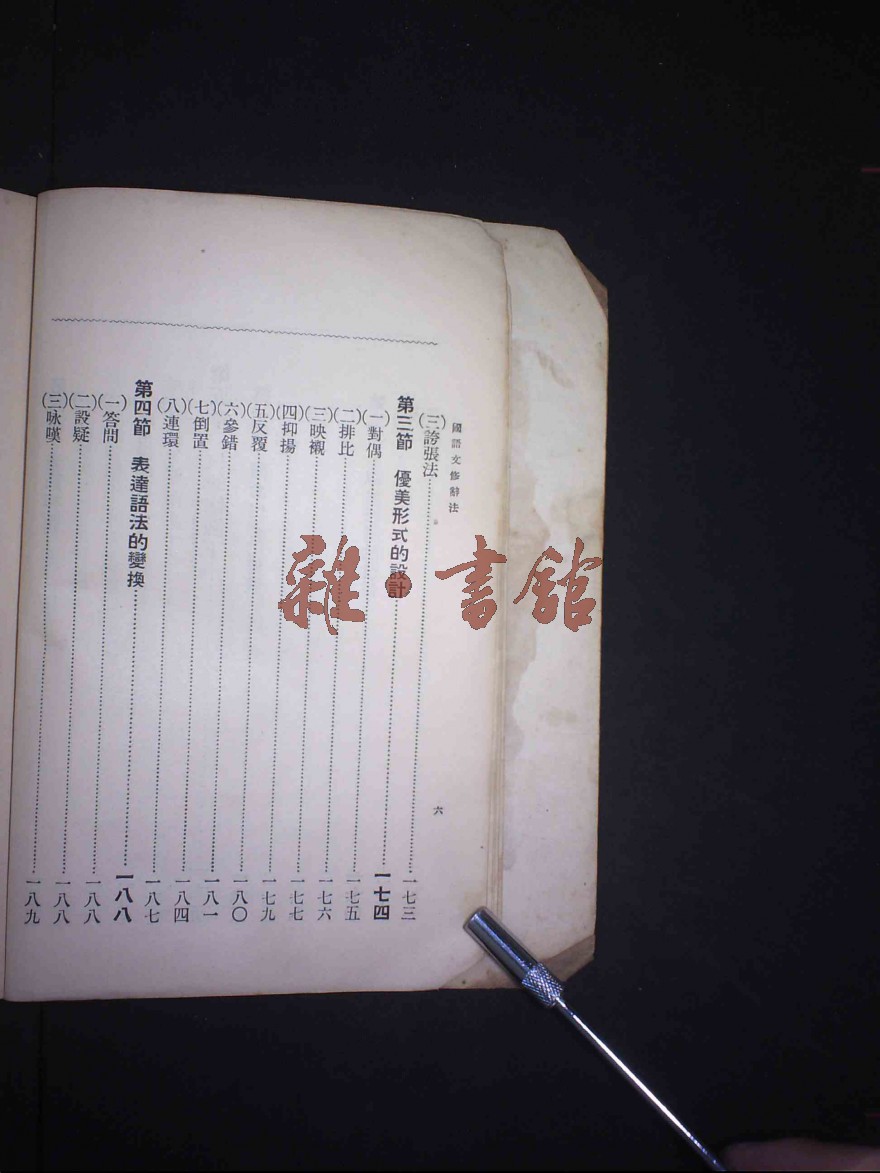 國語文修辭法 六
(三)誇張法 一七三
第三節 優美形式的設計 一七四
(一)對偶 一七五
(二)排比 一七六
(三)映襯 一七七
(四)抑揚 一七九
(五)反覆 一八〇
(六)參錯 一八一
(七)倒置 一八四
(八)連環 一八七
第四節 表達語法的變換 一八八
(一)答問 一八八
(二)設疑 一八八
(三)咏嘆 一八九
雜·書館